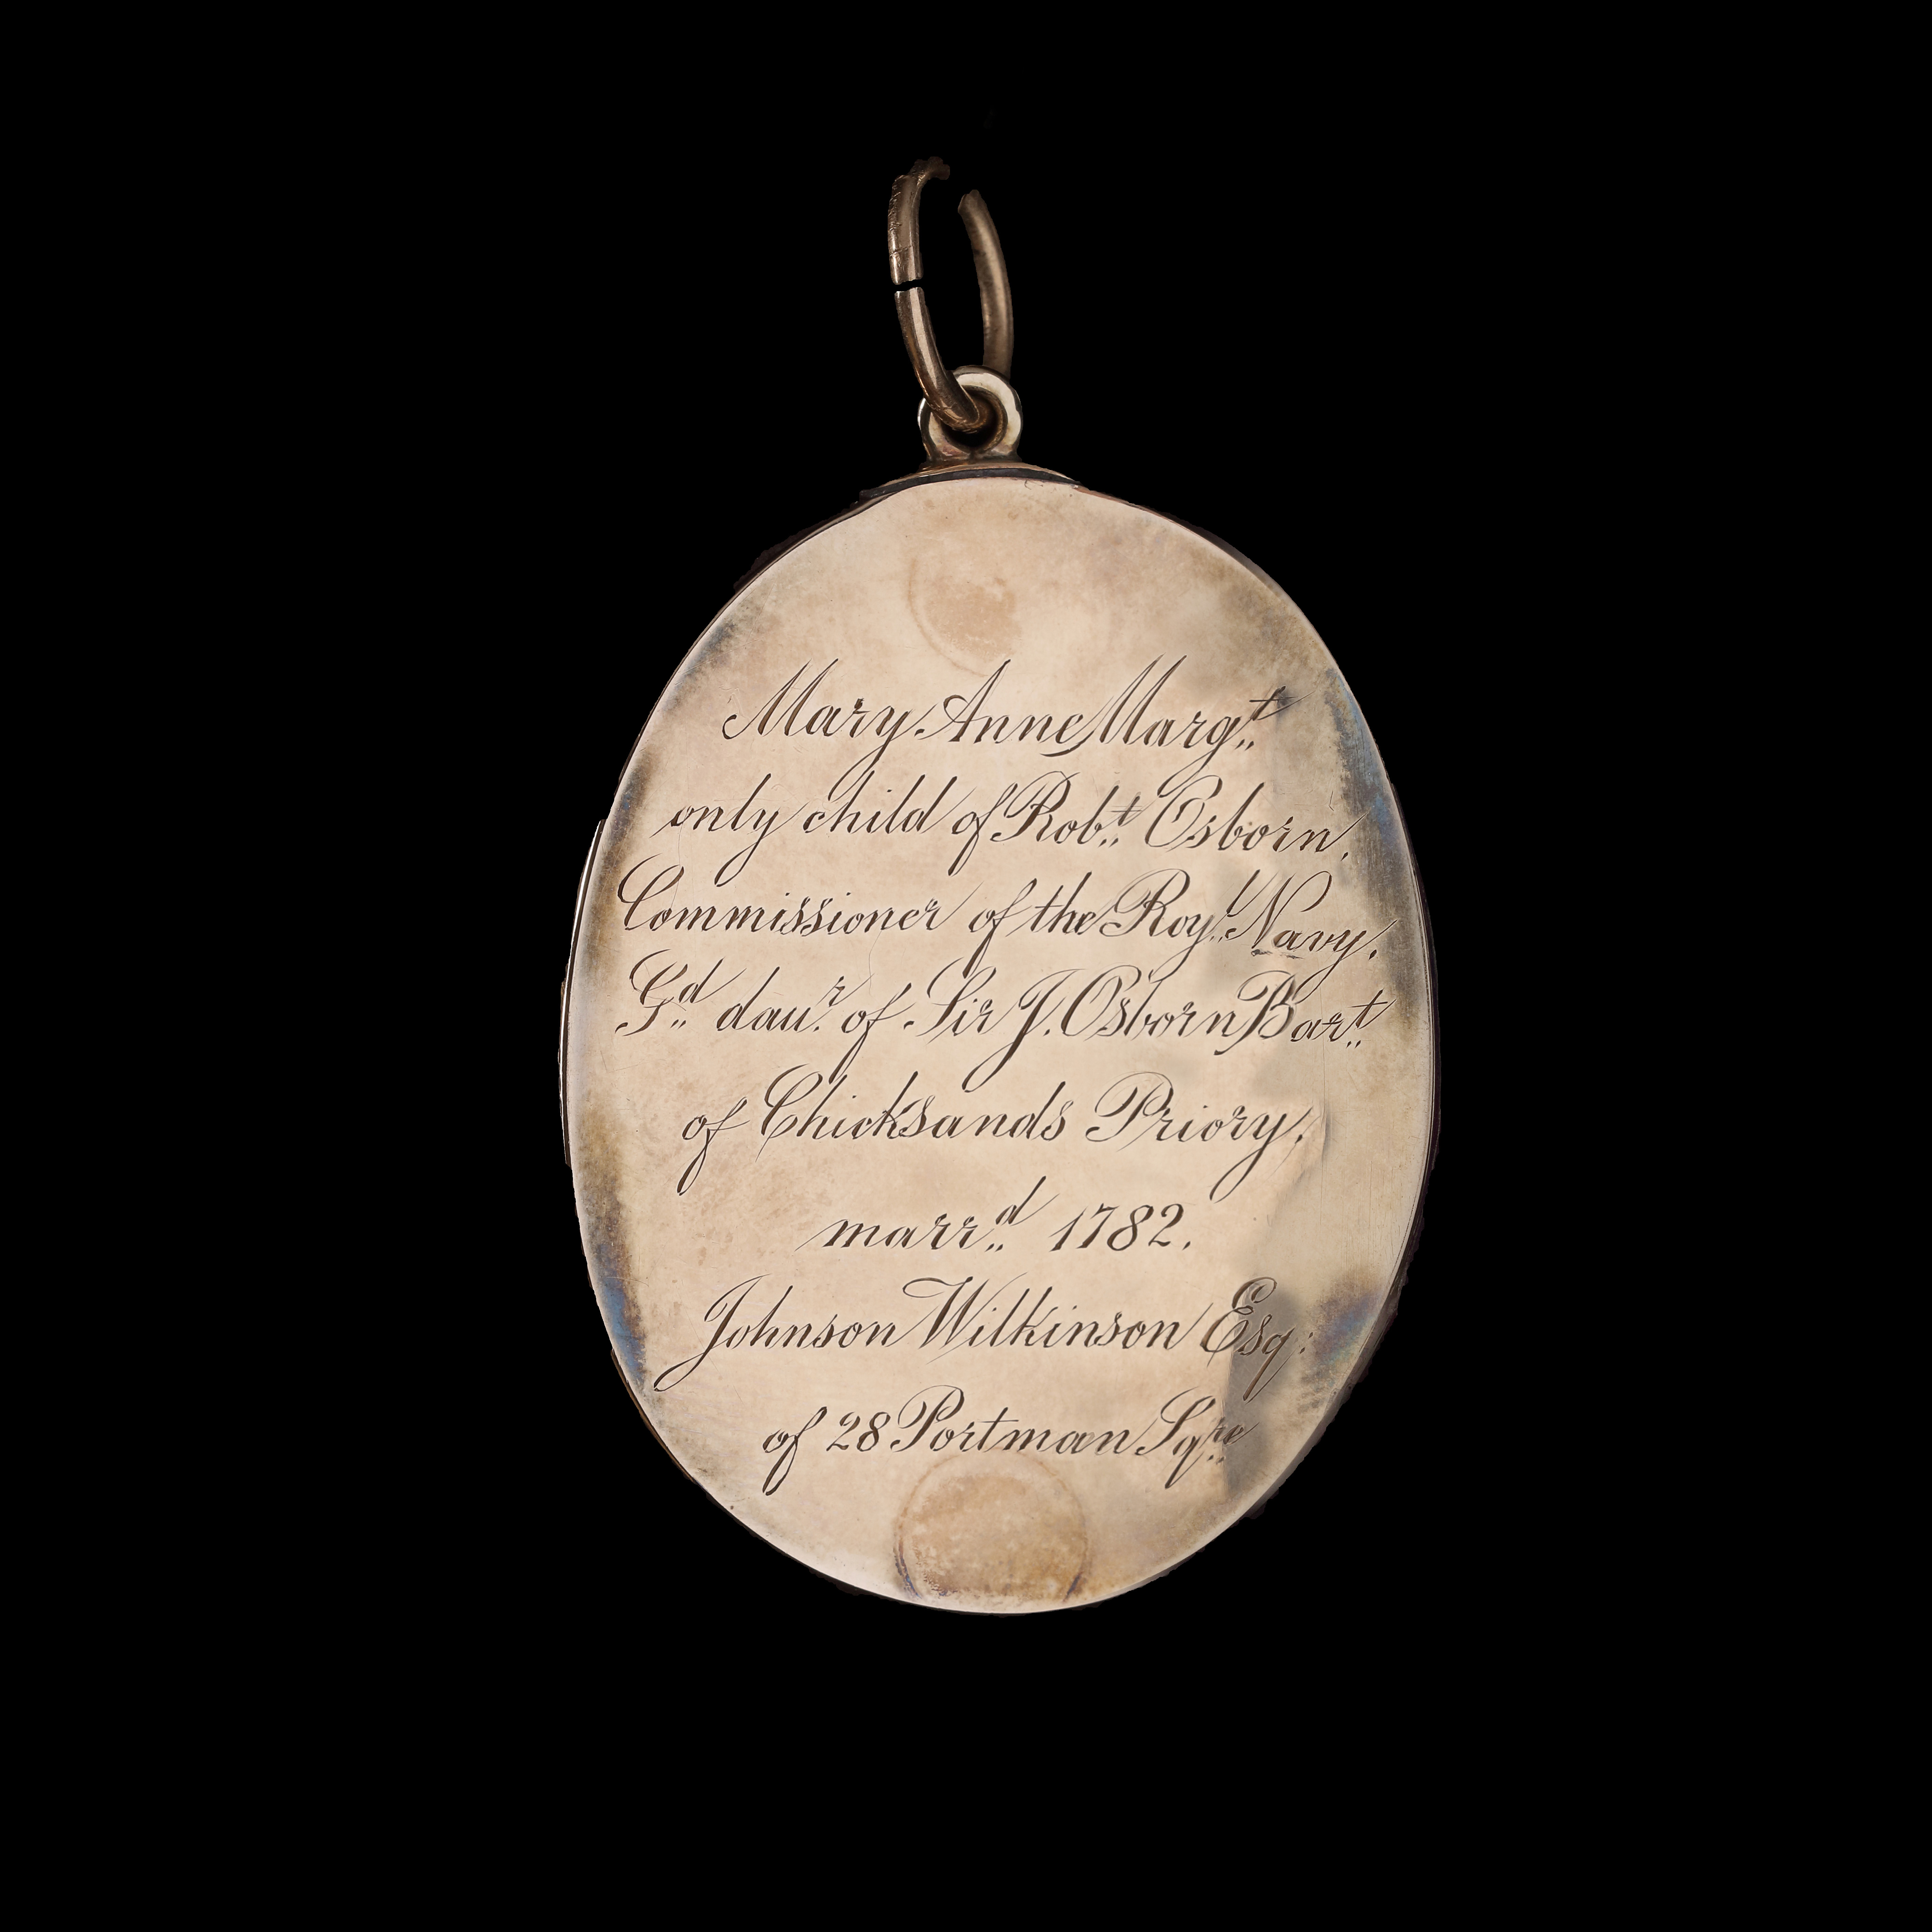 Mary Anne Margt.
only child of Robt. Osborn,
Commissioner of the Royl. Navy,
Gd. daur. of Sir J. Osborn Bart.
of Chicksands Priory,
marrd. 1782.
Johnson Wilkinson Esq:
of 28 Portman Sqre.